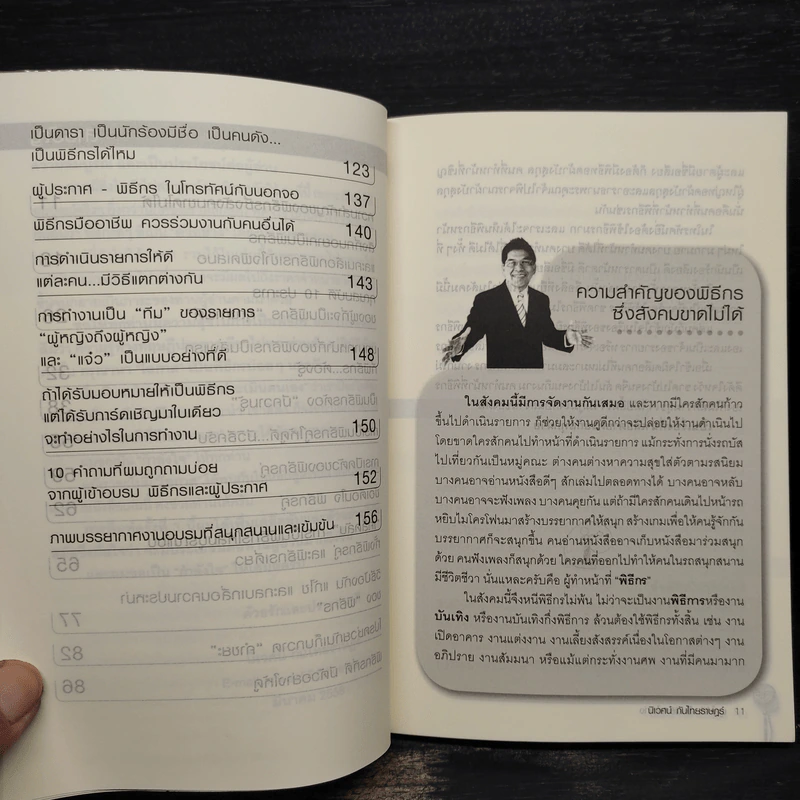 เป็นดารา เป็นนักร้องมีชื่อ เป็นคนดัง...
เป็นพิธีกรได้ไหม 123
ผู้ประกาศ - พิธีกร ในโทรทัศน์กับนอกจอ 137
พิธีกรมืออาชีพ ควรร่วมงานกับคนอื่นได้ 140
การดำเนินรายการให้ดี
แต่ละคน...มีวิธีแตกต่างกัน 143
การทำงานเป็น “ทีม” ของรายการ
“ผู้หญิงถึงผู้หญิง”
และ “แจ๋ว” เป็นแบบอย่างที่ดี 148
ถ้าได้รับมอบหมายให้เป็นพิธีกร
แต่ได้รับการ์ดเชิญมาใบเดียว
จะทำอย่างไรในการทำงาน 150
10 คำถามที่ผมถูกถามบ่อย
จากผู้เข้าอบรม พิธีกรและผู้ประกาศ 152
ภาพบรรยากาศงานอบรมที่สนุกสนานและเข้มข้น 156
ความสำคัญของพิธีกร
ซึ่งสังคมขาดไม่ได้
ในสังคมนี้มีการจัดงานกันเสมอ และหากมีใครสักคนก้าว
ขึ้นไปดำเนินรายการ ก็ช่วยให้งานดูดีกว่าจะปล่อยให้งานดำเนินไป
โดยขาดใครสักคนไปทำหน้าที่ดำเนินรายการ แม้กระทั่งการนั่งรถบัส
ไปเที่ยวกันเป็นหมู่คณะ ต่างคนต่างหาความสุขใส่ตัวตามรสนิยม
บางคนอาจอ่านหนังสือดีๆ สักเล่มไปตลอดทางได้ บางคนอาจหลับ
บางคนอาจจะฟังเพลง บางคนคุยกัน แต่ถ้ามีใครสักคนเดินไปหน้ารถ
หยิบไมโครโฟนมาสร้างบรรยากาศให้สนุก สร้างเกมเพื่อให้คนรู้จักกัน
บรรยากาศก็จะสนุกขึ้น คนอ่านหนังสืออาจเก็บหนังสือมาร่วมสนุก
ด้วย คนฟังเพลงก็สนุกด้วย ใครคนที่ออกไปทำให้คนในรถสนุกสนาน
มีชีวิตชีวา นั่นแหละครับคือ ผู้ทำหน้าที่ “พิธีกร”
ในสังคมนี้จึงหนีพิธีกรไม่พ้น ไม่ว่าจะเป็นงานพิธีการหรืองาน
บันเทิง หรืองานบันเทิงกึ่งพิธีการ ล้วนต้องใช้พิธีกรทั้งสิ้น เช่น งาน
เปิดอาคาร งานแต่งงาน งานเลี้ยงสังสรรค์เนื่องในโอกาสต่างๆ งาน
อภิปราย งานสัมมนา หรือแม้แต่กระทั่งงานศพ งานที่มีคนมามาก
นิเวศน์ กันไทยราษฎร์ 11